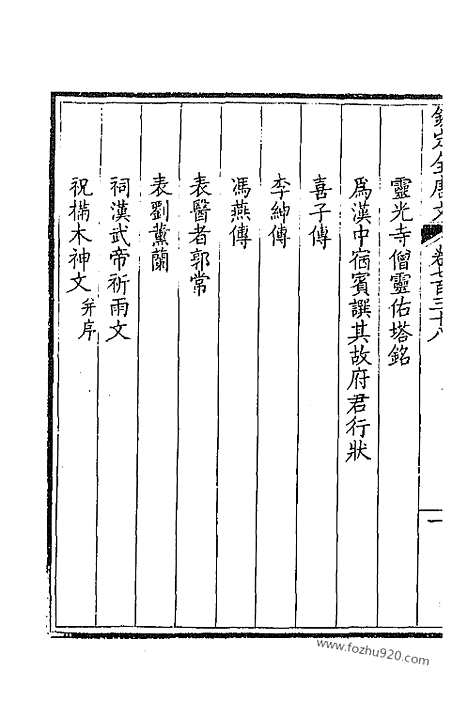 欽定全唐文 卷七百三十八 一
靈光寺僧靈佑塔銘
爲漢中宿賓譔其故府君行狀
喜子傳
李紳傳
馮燕傳
表醫者郭常
表劉薰蘭
祠漢武帝祈雨文
祝𣗋木神文并序
www.fozhu920.com